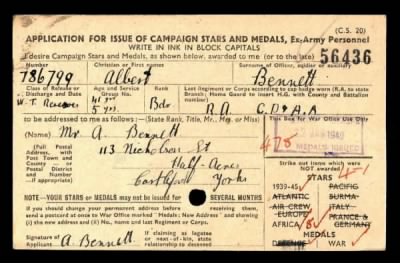 (C.S. 20)
APPLICATION FOR ISSUE OF CAMPAIGN STARS AND MEDALS, Ex-Army Personnel
WRITE IN INK IN BLOCK CAPITALS
I desire Campaign Stars and Medals, as shown below, awarded to me (or to the late) 56436
Number Christian or first names Surname of Officer, soldier or auxiliary
786799 Albert Bennett
Class of Release or Discharge and Date Age and Service Group No. Rank Last Regiment or Corps according to cap badge worn (R.A. to state Branch; Home Guard to insert H.G. with County and Battalion number)
W.T. Reserves 41 yr 5 yrs Bdr R.A C.D & A.A
to be addressed to me as follows:— (State Rank, Title, Mr., Mrs. or Miss)
This Box for War Office Use Only
(Name) Mr A. Bennett
(Full Postal Address, with Post Town and County — or Postal District and Number if appropriate)
113 Nicholson St
Half-Acres
Castleford Yorks
1949
MEDALS ISSUED
475
Strike out items which were NOT awarded
STARS
1939-45 PACIFIC
ATLANTIC BURMA
AIR CREW ITALY
EUROPE FRANCE & GERMANY
AFRICA 8
MEDALS
DEFENCE WAR
NOTE—YOUR STARS or MEDALS may not be issued for SEVERAL MONTHS
If you should change your permanent address before receiving them, send a postcard at once to War Office marked "Medals: New Address" and showing (i) the new and old addresses, (ii) No., name and last Regiment or Corps.
Signature of Applicant A. Bennett
If claiming as legatee or next-of-kin, state relationship to above